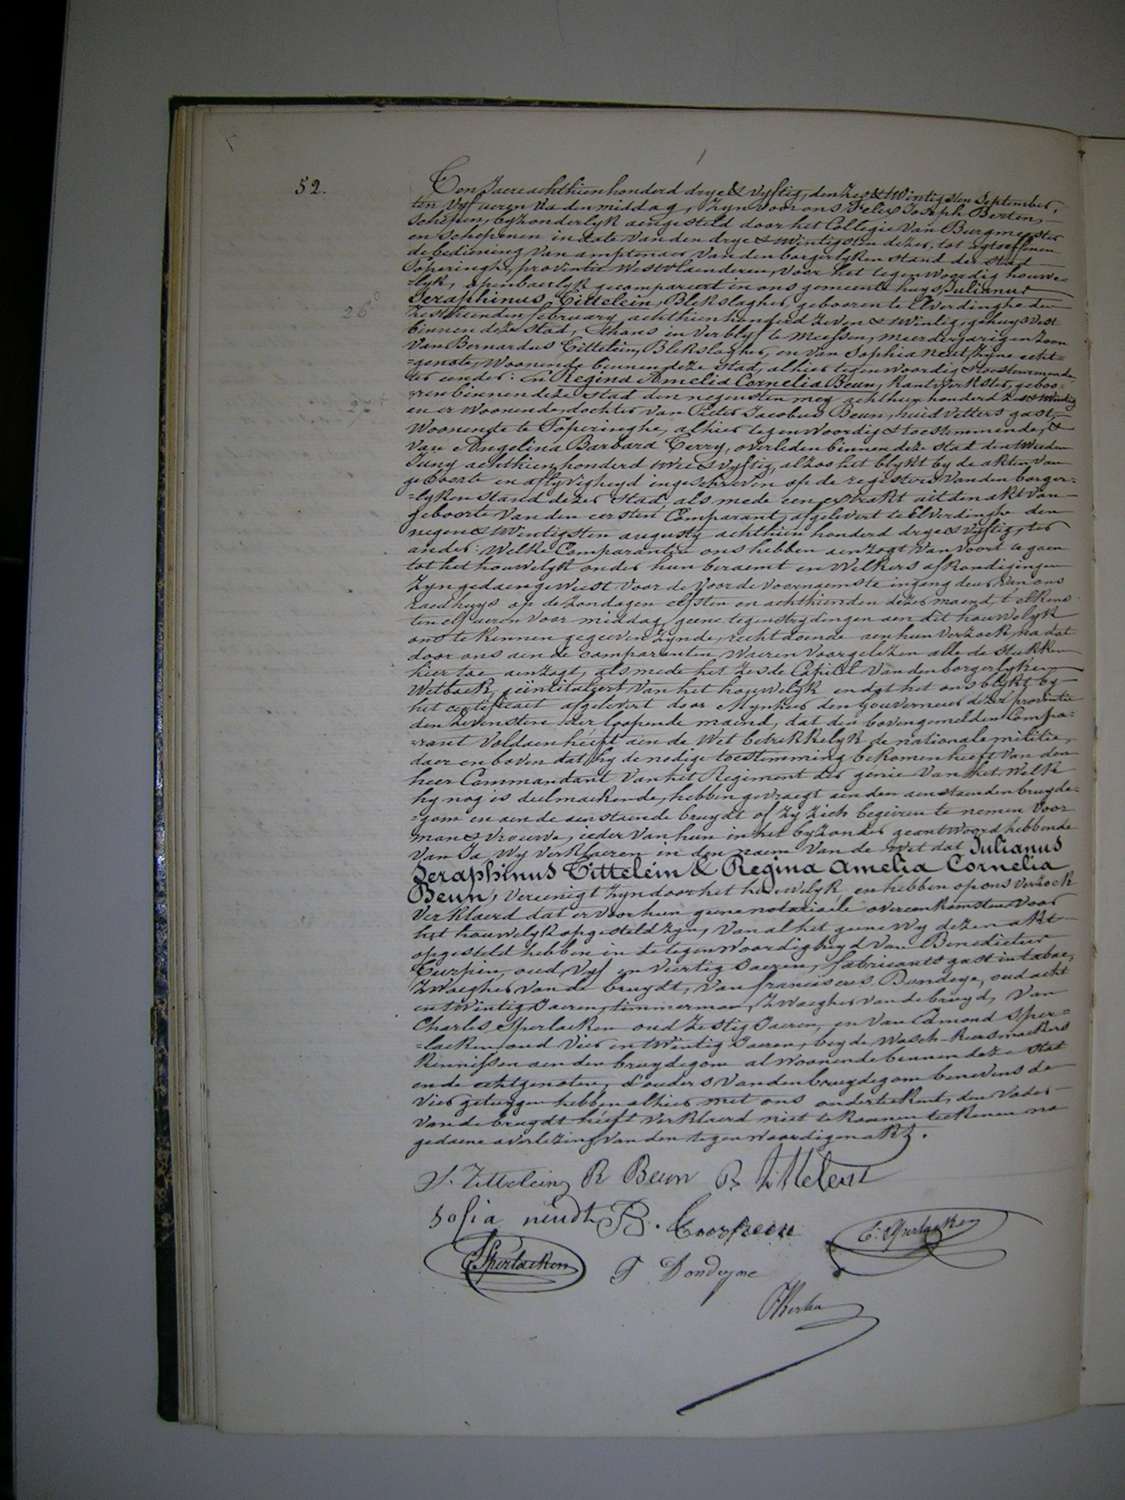 52.
Ten Jaere achthien honderd drye & vyftig, den Zes & Twintigsten September,
ten vyf ueren na den middag, Zyn voor ons Felix Joseph Berten,
Schepen, byzonderlyk aengesteld door het Collegie van Burgmeester
en Schepenen in date van den drye & twintigsten dezer, tot uytoeffenen
de bediening van amptenaer van den borgerlyken stand der stad
Poperinghe, provintie Westvlaenderen, voor het tegenwoordig houwe-
-lyk, openbaerlyk gecompareert in ons gemeente huys, Julianus
Seraphinus Tittelein, Blekslagher, gebooren te Elverdinghe den
Zesthienden february achthien honderd Zeven & twintig, gehuysvest
binnen deze stad, thans in verblyf te Meessen, meerderjarigen Zoon
van Bernardus Tittelein, Blekslagher, en van Sophia Neut, Zyne echt-
-genote, Woonende binnen deze stad, alhier tegenwoordig & toestemmende
ter eender: en Regina Amelia Cornelia Beun, kantwerkster, geboo-
-ren binnen deze stad den negensten mey achthien honderd Zes & twintig
en er Woonende, dochter van Pieter Jacobus Beun, huidvetters gast,
Woonende te Poperinghe, alhier tegenwoordig & toestemmende, &
van Angelina Barbara Terry, overleden binnen deze stad den tweeden
Juny achthien honderd twee & vyftig, alzoo het blykt by de akten van
geboorte en aflyvigheyd ingeschreven op de registers van den borger-
-lyken stand dezer stad, als mede een extrakt uit den akt van
geboorte van den eersten Comparant, afgelevert te Elverdinghe den
negen & twintigsten augusty achthien honderd drye & vyftig, ter
ander: Welke Comparanten ons hebben aenzogt van voort te gaen
tot het houwelyk onder hun beraemt en Welkers afkondigingen
Zyn gedaen geweest voor de voornaemste ingang deur van ons
raedhuys op de Zondagen elfsten en achthienden dezer maend, t'elkens
ten elf ueren voor middag, geene tegenstrydingen aen dit houwelyk
ons te kennen gegeven Zynde, recht doende aen hun verzoek, na dat
door ons aen de comparanten waeren voorgelezen alle de stukken
hier toe aenzogt, als mede het Zesde Capitel van den borgerlyken
Wetboek, geintituleert van het houwelyk en dat het ons blykt by
het certificaet afgelevert door Mynheer den Gouverneur dezer provintie
den Zevensten der loopende maend, dat den bovengemelden Compa-
-rant voldaen heeft aen de Wet betrekkelyk de nationale militie,
daer en boven dat hy de nodige toestemming bekomen heeft van den
heer Commandant van het Regiment der genie van het Welke
hy nog is deelmaekende, hebben gevraegt aen den aenstaenden bruyde-
-gom en aen de aenstaende bruydt of Zy Zich begeiren te nemen voor
man & vrouwe, ieder van hun in het byzonder geantwoord hebbende
van Ja, Wy verklaeren in den naem van de Wet dat Julianus
Seraphinus Tittelein & Regina Amelia Cornelia
Beun, vereenigt Zyn door het houwelyk, en hebben op ons verzoek
verklaerd dat er voor hun geene notariele overeenkomsten voor
het houwelyk opgesteld Zyn, van al het geene Wy dezen akt
opgesteld hebben in de tegenwoordigheyd van Benedictus
oud vyf en viertig Jaeren, fabricants gast in tabac,
Zwaegher van de bruydt, van franciscus Dondeyne, oud acht
en twintig Jaeren, timmerman, Zwaegher van de bruyd, van
Charles Sperlaeken oud Zestig Jaeren, en van Edmond Sper-
-laeken oud vier en twintig Jaeren, beyde Wasch-keersmaekers
kennissen aen den bruydegom al woonende binnen deze stad
en de echtgenoten, d'ouders van den bruydegom benevens de
vier getuygen hebben alhier met ons onderteekent, den vader
van de bruydt heeft verklaerd niet te konnen teekenen na
gedaene overlezing van den tegenwoordigen akt.
J. Tittelein R Beun B. Tittelein
Sofia neudt B.
C. Sperlaeken
E. Sperlaeken F Dondeyne
F Berten